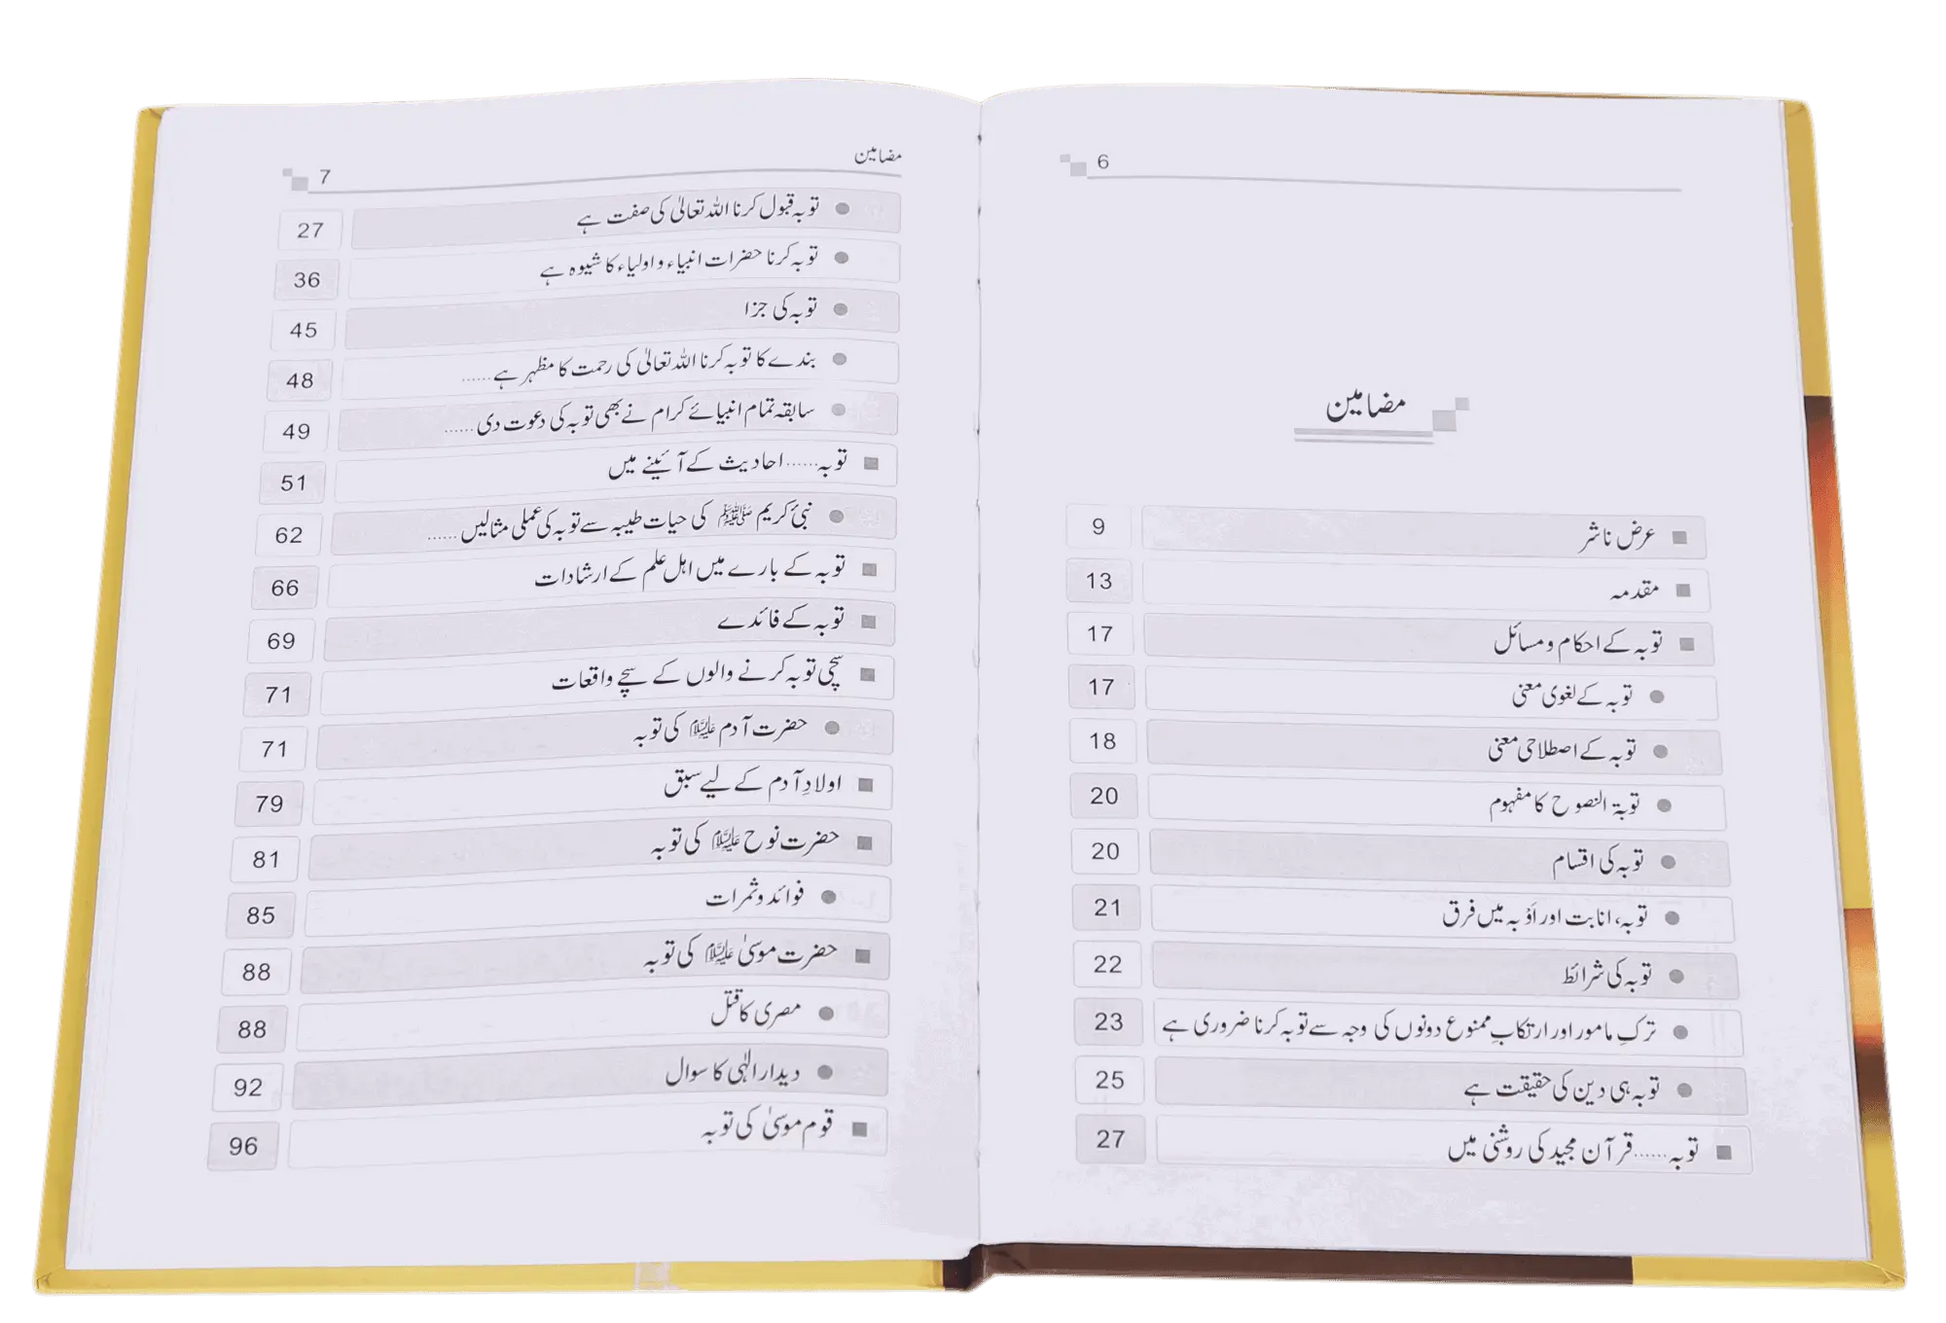 6
مضامین
■ عرض ناشر 9
■ مقدمہ 13
■ توبہ کے احکام و مسائل 17
● توبہ کے لغوی معنی 17
● توبہ کے اصطلاحی معنی 18
● توبۃ النصوح کا مفہوم 20
● توبہ کی اقسام 20
● توبہ، انابت اور اَوْبہ میں فرق 21
● توبہ کی شرائط 22
● ترکِ مامور اور ارتکابِ ممنوع دونوں کی وجہ سے توبہ کرنا ضروری ہے 23
● توبہ ہی دین کی حقیقت ہے 25
■ توبہ......قرآن مجید کی روشنی میں 27
مضامین 7
● توبہ قبول کرنا اللہ تعالیٰ کی صفت ہے 27
● توبہ کرنا حضرات انبیاء و اولیاء کا شیوہ ہے 36
● توبہ کی جزا 45
● بندے کا توبہ کرنا اللہ تعالیٰ کی رحمت کا مظہر ہے...... 48
● سابقہ تمام انبیائے کرام نے بھی توبہ کی دعوت دی...... 49
■ توبہ......احادیث کے آئینے میں 51
● نبیٔ کریم ﷺ کی حیات طیبہ سے توبہ کی عملی مثالیں...... 62
■ توبہ کے بارے میں اہل علم کے ارشادات 66
■ توبہ کے فائدے 69
■ سچی توبہ کرنے والوں کے سچے واقعات 71
● حضرت آدم علیہ السلام کی توبہ 71
■ اولادِ آدم کے لیے سبق 79
■ حضرت نوح علیہ السلام کی توبہ 81
● فوائد و ثمرات 85
■ حضرت موسیٰ علیہ السلام کی توبہ 88
● مصری کا قتل 88
● دیدار الٰہی کا سوال 92
■ قوم موسیٰ کی توبہ 96